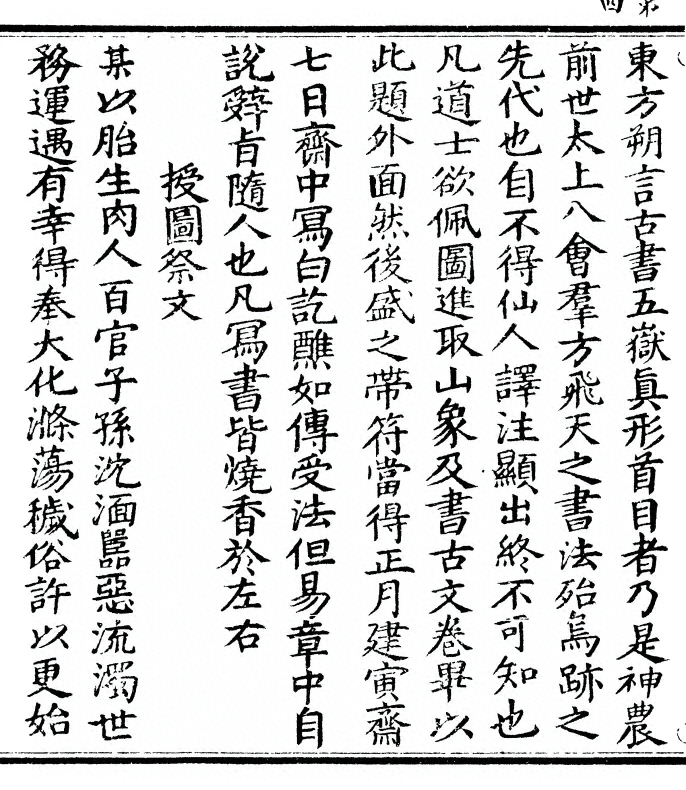 東方朔言古書五嶽眞形首目者乃是神農
前世太上八會羣方飛天之書法殆鳥跡之
先代也自不得仙人譯注顯出終不可知也
凡道士欲佩圖進取山象及書古文卷畢以
此題外面然後盛之帶符當得正月建寅齋
七日齋中寫白訖醮如傳受法但易章中自
說辭旨隨人也凡寫書皆燒香於左右
授圖祭文
某以胎生肉人百官子孫沈湎嚚惡流濁世
務運遇有幸得奉大化滌蕩穢俗許以更始